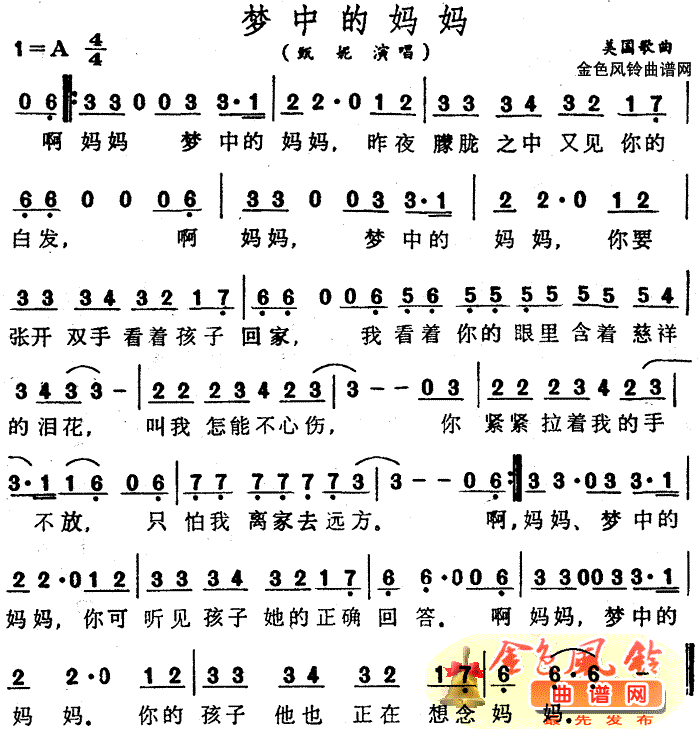 梦中的妈妈
1=A 4/4 （甄妮演唱） 美国歌曲
金色风铃曲谱网
0 6 3 3 0 0 0 3 3·1 | 2 2·0 1 2 | 3 3 3 4 3 2 1 7 |
啊 妈妈 梦 中的 妈妈, 昨夜 朦胧 之中 又见 你的
6 6 0 0 0 6 | 3 3 0 0 3 3·1 | 2 2·0 1 2 |
白发, 啊 妈妈, 梦 中的 妈 妈, 你要
3 3 3 4 3 2 1 7 | 6 6 0 0 6 5 6 | 5 5 5 5 5 5 5 4 |
张开 双手 看着 孩子 回家, 我 看着 你的 眼里 含着 慈祥
3 4 3 3 3 – | 2 2 2 3 4 2 3 | 3 – – 0 3 | 2 2 2 3 4 2 3 |
的泪花, 叫我 怎能不心伤, 你 紧紧 拉着我的手
3·1 1 6 0 6 | 7 7 7 7 7 7 3 | 3 – – 0 6 :‖ 3 3·0 3 3·1 |
不放, 只 怕我 离家去远方. 啊, 妈妈、梦中的
2 2·0 1 2 | 3 3 3 4 3 2 1 7 | 6 6·0 0 6 | 3 3 0 0 3 3·1 |
妈妈, 你可 听见 孩子 她的正确 回答. 啊 妈妈, 梦中的
2 2·0 1 2 | 3 3 3 4 3 2 1 7 | 6 6·6 – |
妈 妈. 你的 孩子 他也 正在 想念 妈 妈.
金色风铃
曲谱网
最先发布